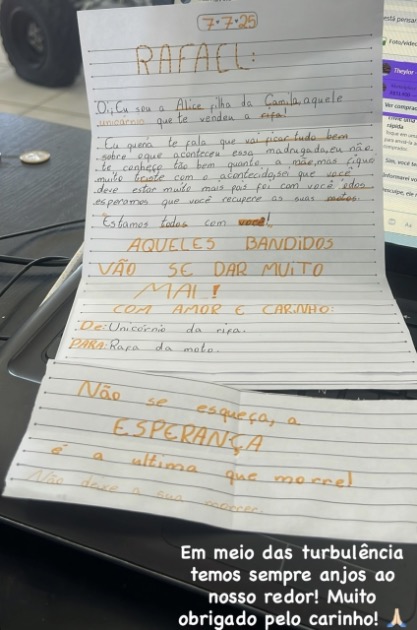 7.7.25
RAFAEL:
Oi, Eu sou a Alice filha da Camila, aquele
unicórnio que te vendeu a rifa!
Eu queria te fala que vai ficar tudo bem
sobre oque aconteceu essa madrugada, eu não
te conheço tão bem quanto a mãe, mas fiquei
muito triste com o acontecido, sei que você
deve estar muito mais pois foi com você, e todos
esperamos que você recupere as suas motos.
Estamos todos com você!
AQUELES BANDIDOS
VÃO SE DAR MUITO
MAL!
COM AMOR E CARINHO:
De: Unicórnio da rifa.
PARA: Rafa da moto.
Não se esqueça, a
ESPERANÇA
é a ultima que morre!
Não deixe a sua morrer
Foto/vídeo
Theylor
Ver compra
rápida
Em meio das turbulência
temos sempre anjos ao
nosso redor! Muito
obrigado pelo carinho! 🙏🏻